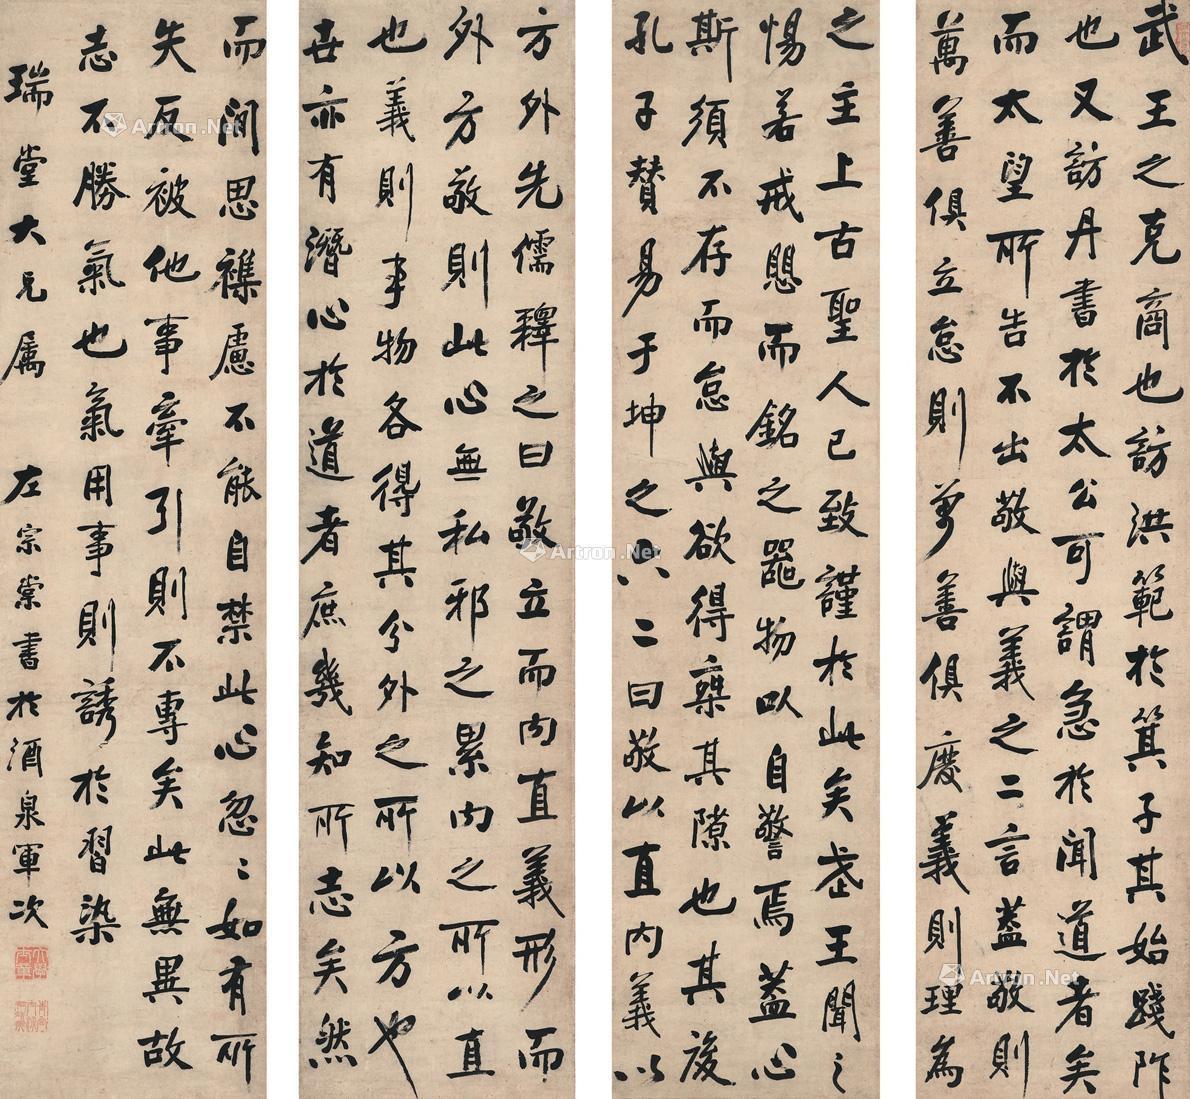 武王之克商也訪洪範於箕子其始踐阼
也又訪丹書於太公可謂急於聞道者矣
而太望所告不出敬與義之二言蓋敬則
萬善俱立怠則萬善俱廢義則理為
之主上古聖人已致謹於此矣武王聞之
惕若戒懼而銘之器物以自警焉蓋心
斯須不存而怠與欲得乘其隙也其後
孔子贊易于坤之六二曰敬以直內義以
方外先儒釋之曰敬立而內直義形而
外方敬則此心無私邪之累內之所以直
也義則事物各得其分外之所以方也
世亦有潛心於道者庶幾知所志矣然
而閒思襍慮不能自禁此心忽忽如有所
失反被他事牽引則不專矣此無異故
志不勝氣也氣用事則誘於習染
瑞堂大兄屬 左宗棠書於酒泉軍次
Artron.Net
Artron.Net
Artron.Net